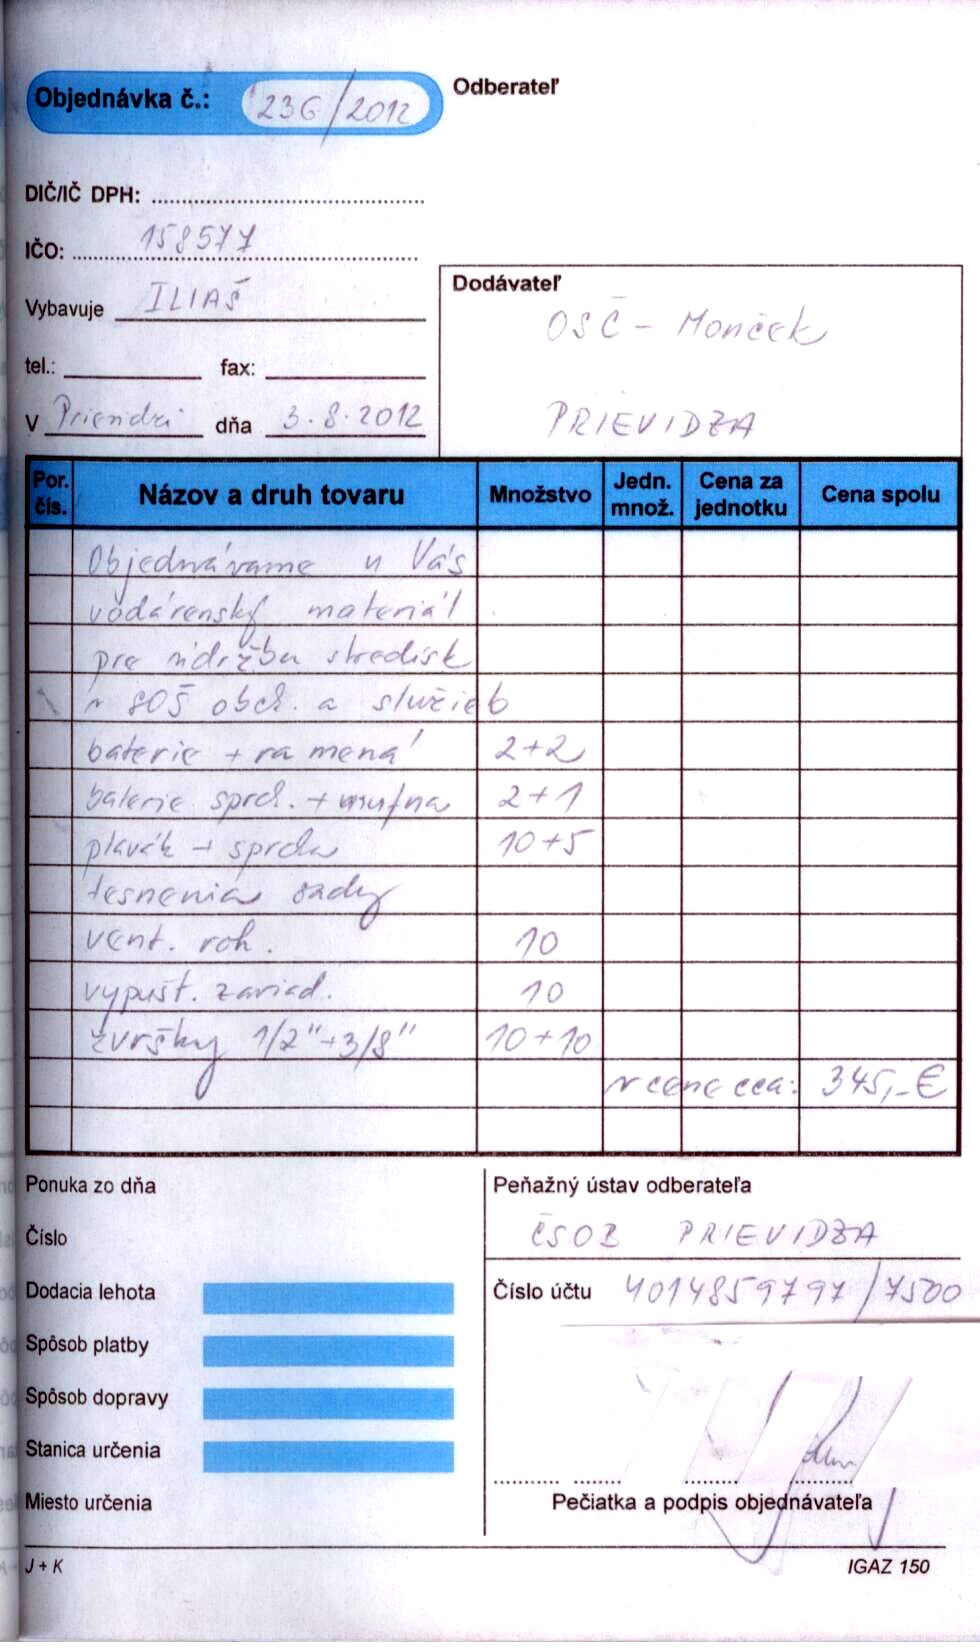 Objednávka č.: 236/2012
Odberateľ
DIČ/IČ DPH:
IČO: 158577
Vybavuje ILIAŠ
tel.: fax:
V Prievidzi dňa 3.8.2012
Dodávateľ
OSČ - Monček
PRIEVIDZA
Por. čís. Názov a druh tovaru Množstvo Jedn. množ. Cena za jednotku Cena spolu
Objednávame u Vás
vodárenský materiál
pre údržbu stredísk
v SOŠ obch. a služieb
baterie + ramená 2+2
baterie sprch. + mufna 2+1
plavák + sprcha 10+5
tesnenia sady
vent. roh. 10
vypúšt. zariad. 10
zvršky 1/2" + 3/8" 10+10
v cene cca: 345,- €
Ponuka zo dňa
Číslo
Dodacia lehota
Spôsob platby
Spôsob dopravy
Stanica určenia
Miesto určenia
Peňažný ústav odberateľa
ČSOB PRIEVIDZA
Číslo účtu 4014859797/7500
Pečiatka a podpis objednávateľa
J + K
IGAZ 150